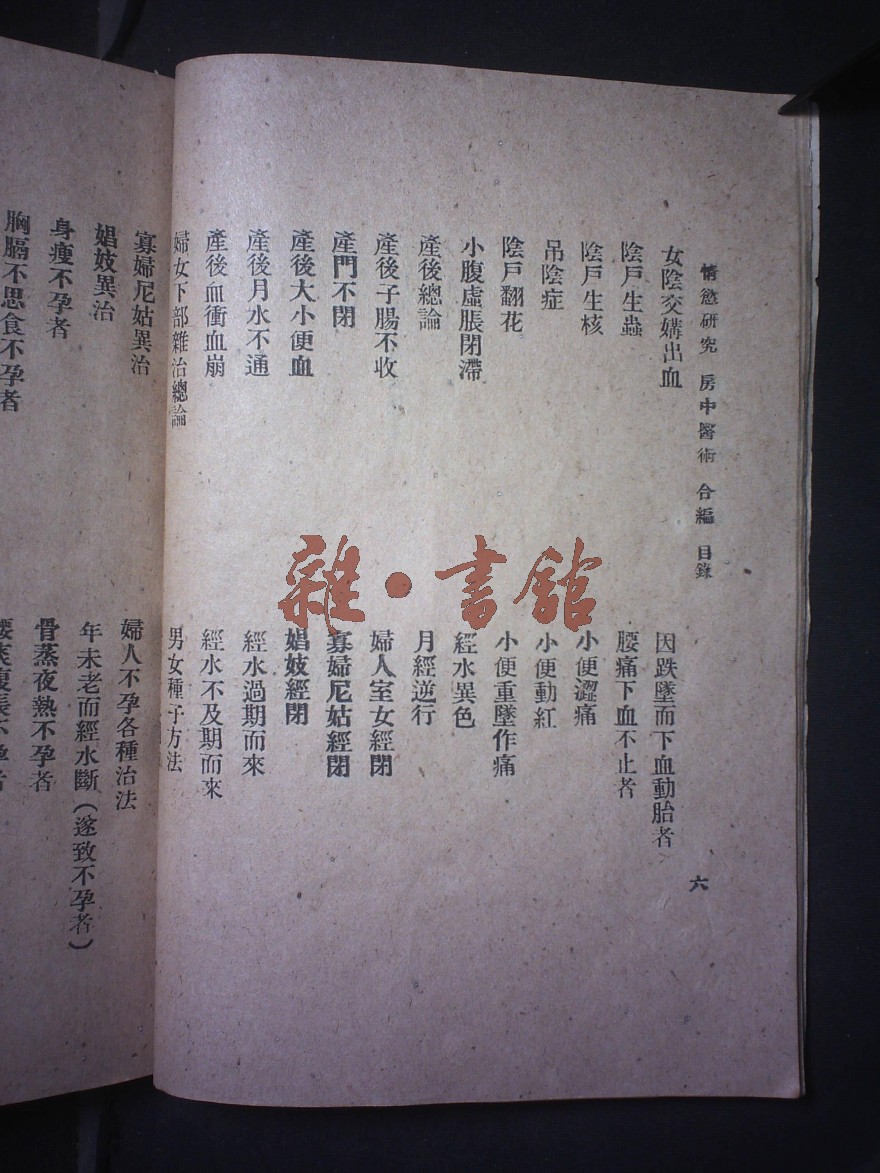 情慾研究 房中醫術 合編 目錄
六
女陰交媾出血
因跌墜而下血動胎者
陰戶生蟲
腰痛下血不止者
陰戶生核
小便澀痛
吊陰症
小便動紅
陰戶翻花
小便重墜作痛
小腹虛脹閉滯
經水異色
產後總論
月經逆行
產後子腸不收
婦人室女經閉
產門不閉
寡婦尼姑經閉
產後大小便血
娼妓經閉
產後月水不通
經水過期而來
產後血衝血崩
經水不及期而來
婦女下部雜治總論
男女種子方法
寡婦尼姑異治
婦人不孕各種治法
娼妓異治
年未老而經水斷(遂致不孕者)
身瘦不孕者
骨蒸夜熱不孕者
胸膈不思食不孕者
雜·書館